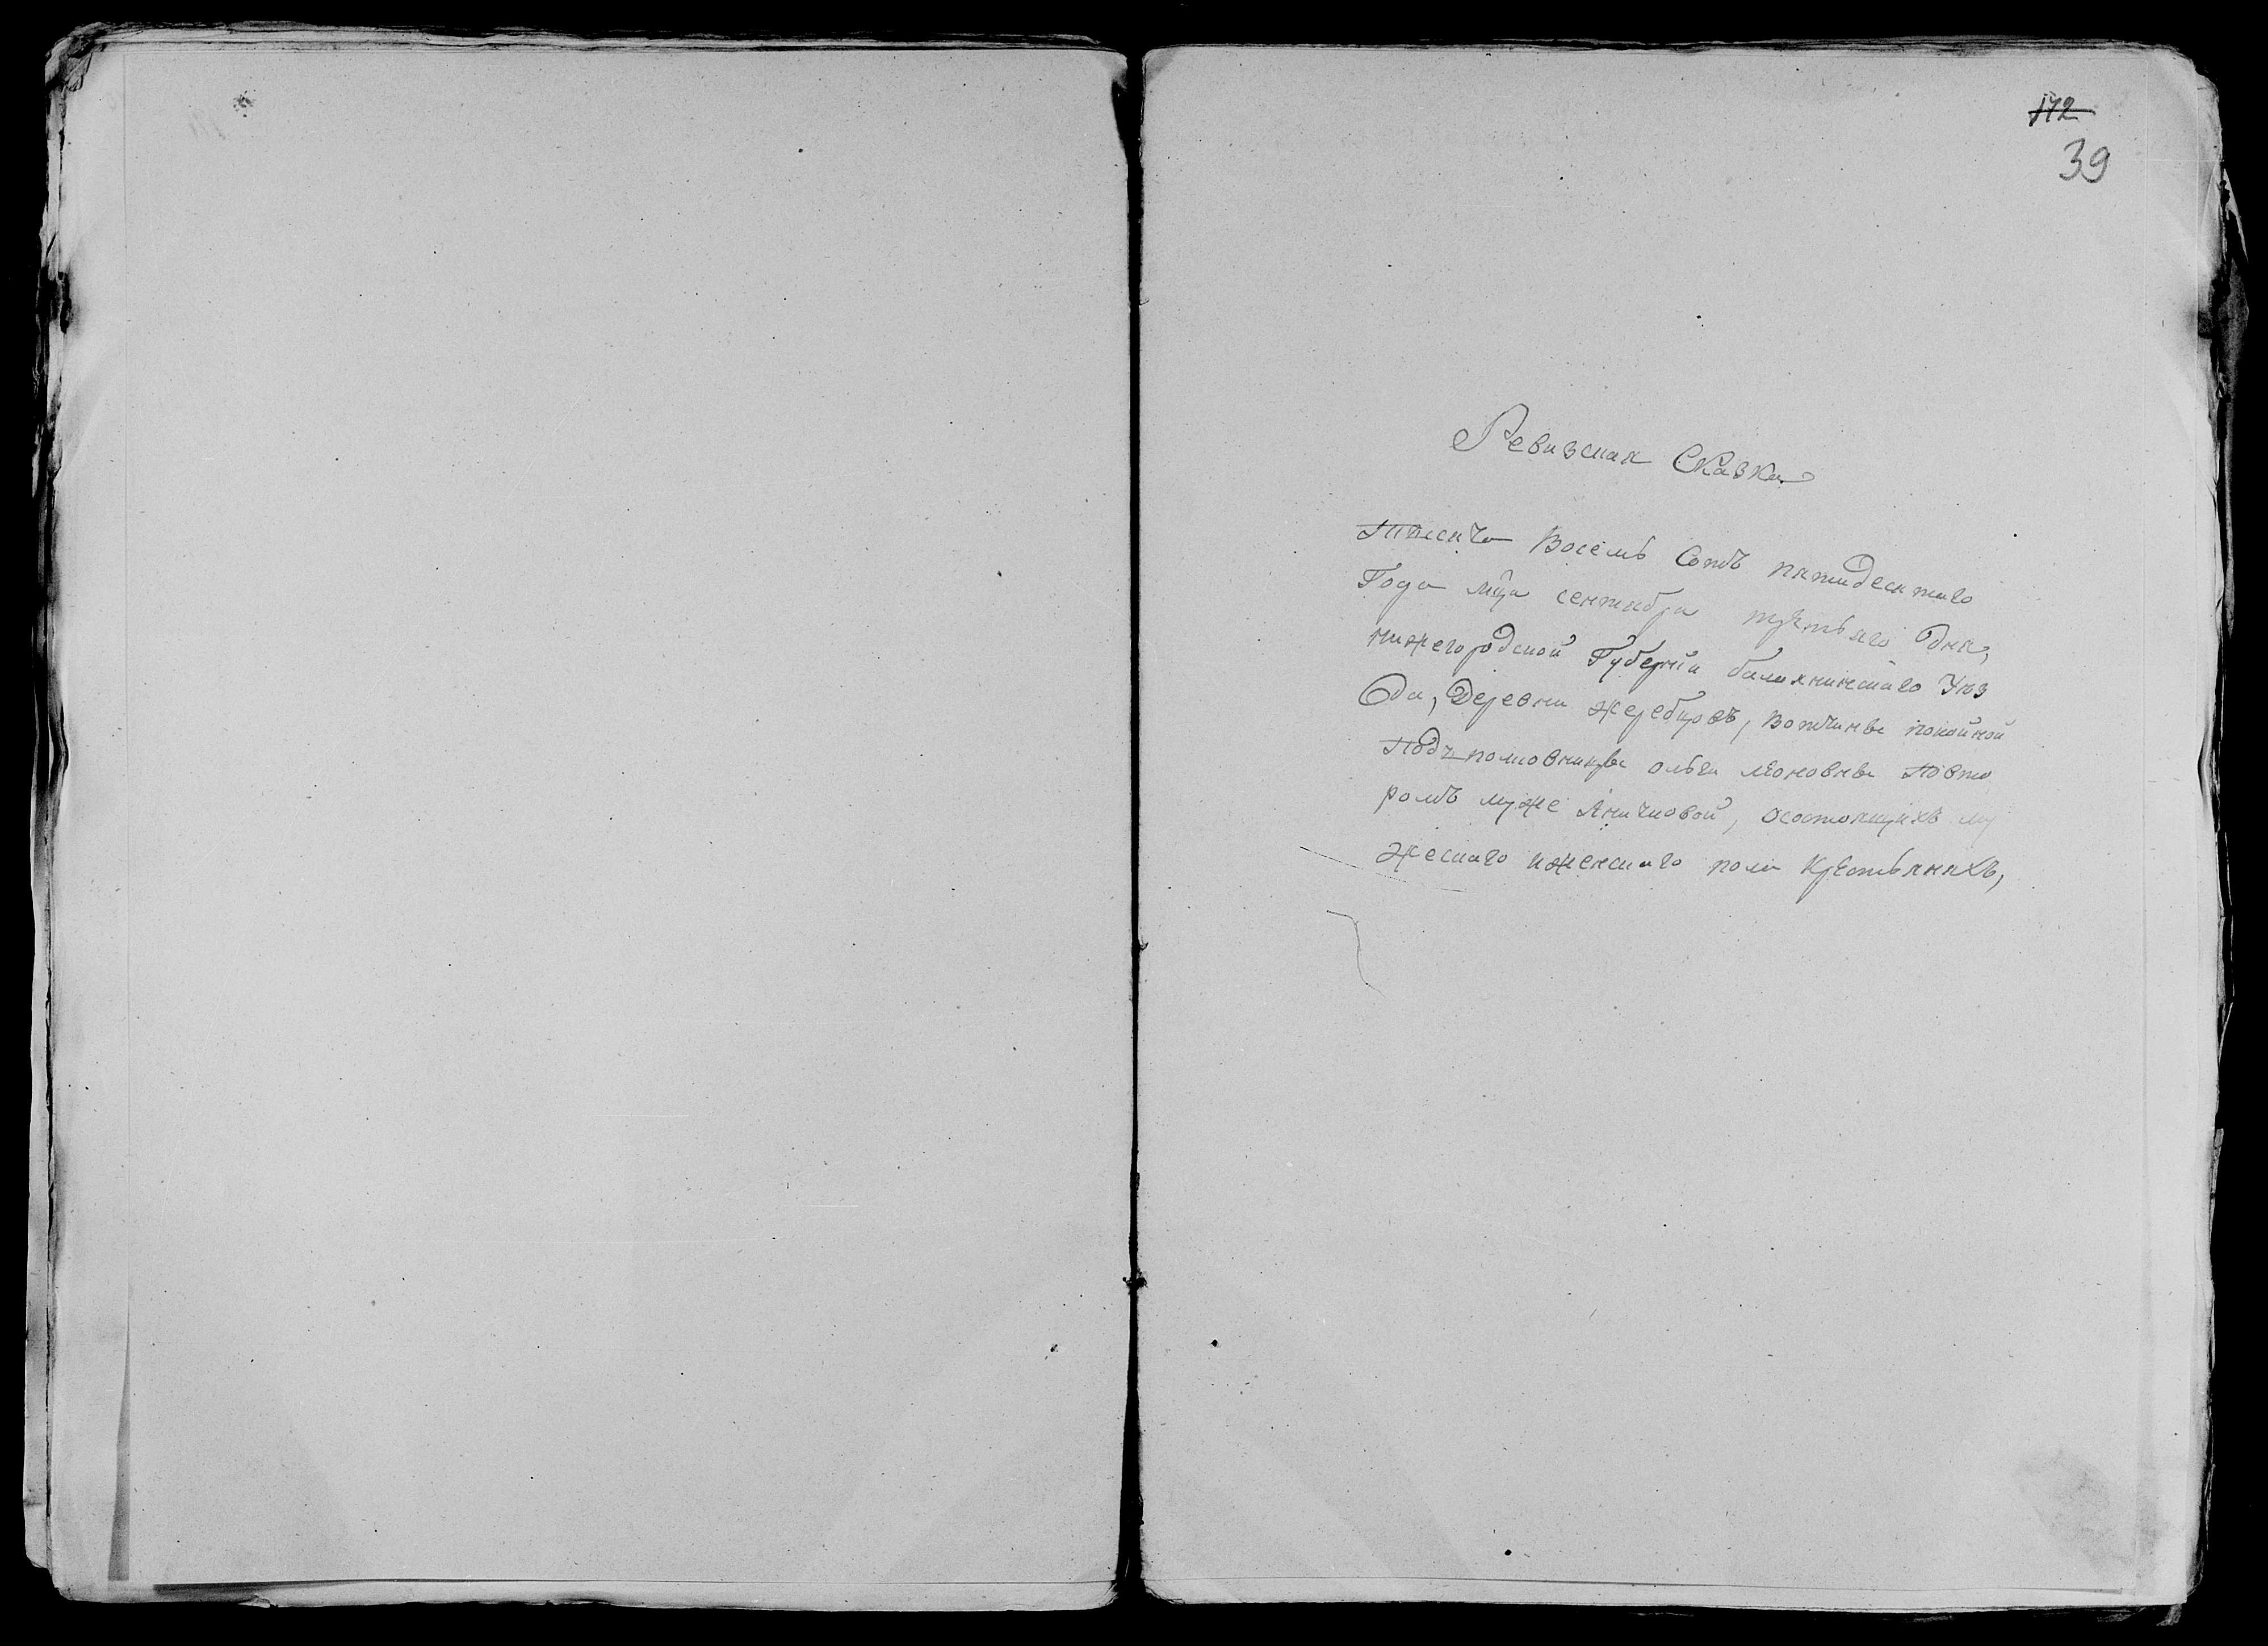 172
39
Ревизская Сказка
Тысяча Восемь Сотъ пятидесятаго
Года мца сентября третьяго Дня,
нижегородской Губернiи балахнинскаго Уѣз
Да, Деревни жеребцовъ, вотчины покойной
Подъ полковницы ольги леоновны Повто
ромъ муже Аничковой, осостоящихъ му
жескаго иженскаго пола Крестьянахъ,